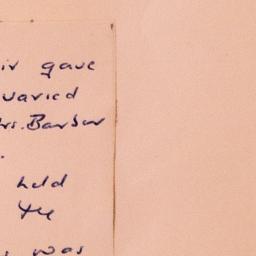 ir gave
varied
rs. Barber
.
held
the
was